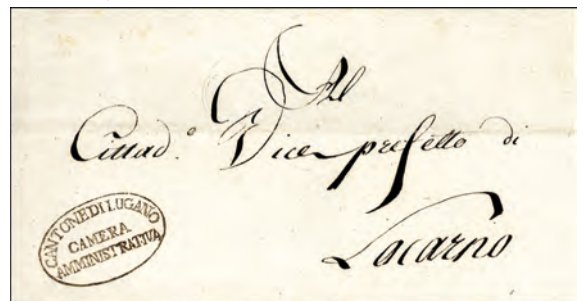 Al
Cittad.º Vice prefetto di
Locarno
CANTONE DI LUGANO
CAMERA
AMMINISTRATIVA